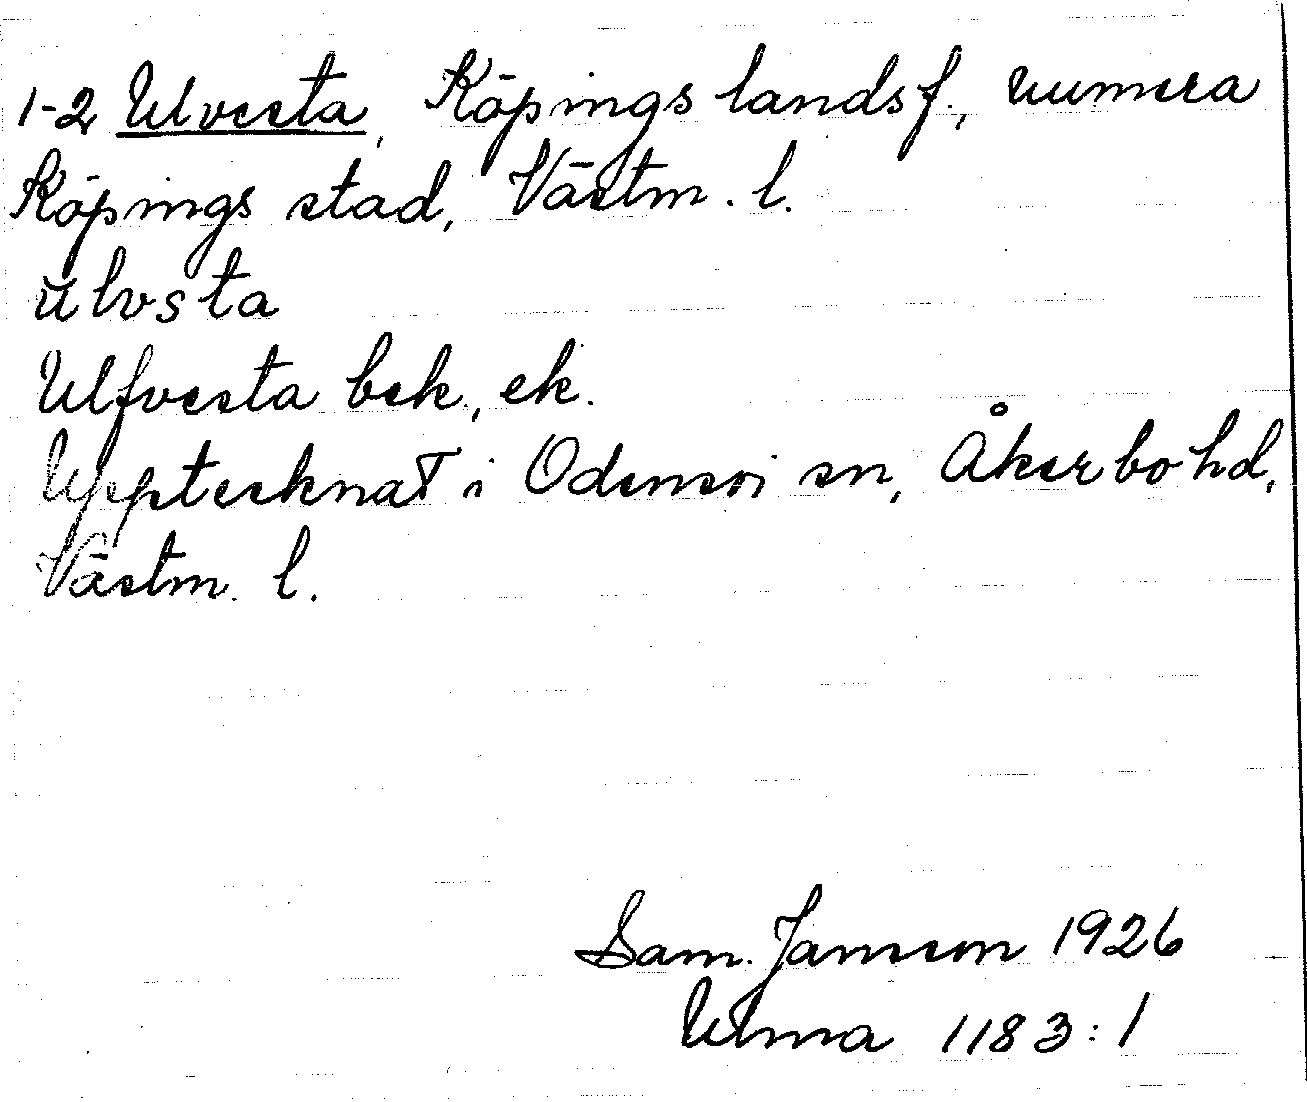 1-2 Ulvesta, Köpings landsf., numera
Köpings stad, Västm. l.
ŭlvsta
Ulfvesta bek., ek.
Upptecknat i Odensvi sn, Åkerbo hd,
Västm. l.
Sam. Jansson 1926
Ulma 1183:1